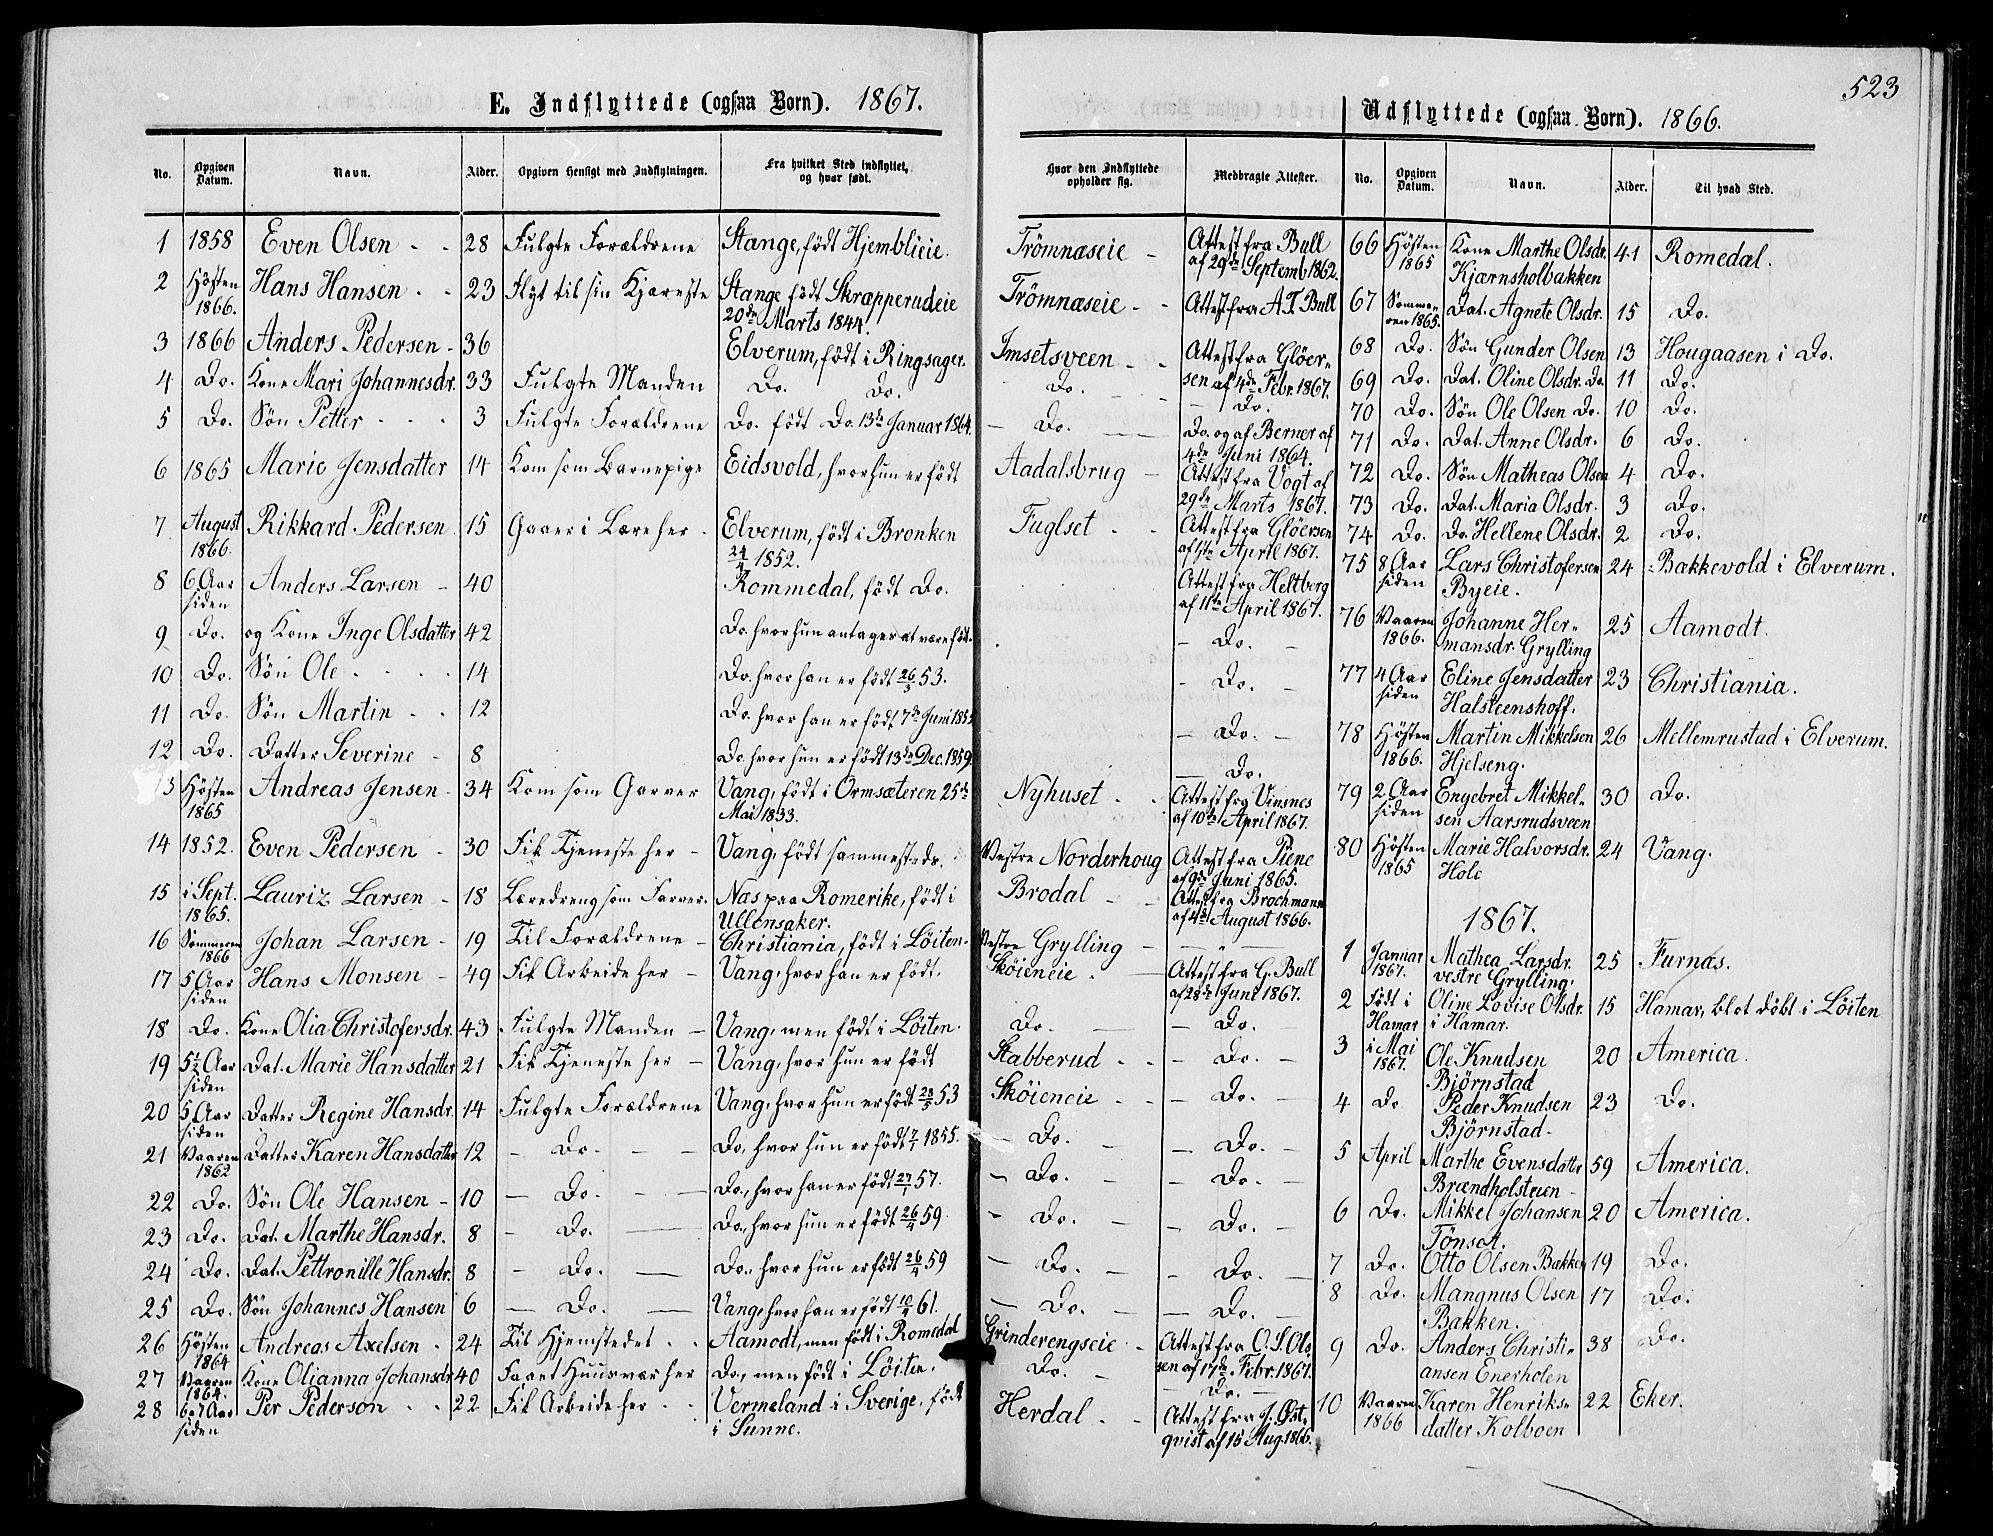 523
E. Indflyttede (ogsaa Born). 1867.
No. Opgiven Datum. Navn. Alder. Opgiven Hensigt med Indflytningen. Fra hvilket Sted indflyttet, og hvor født.
1 1858 Even Olsen 28 Fulgte Forældrene Stange, født Hjemblieie.
2 Høsten 1866. Hans Hansen 23 Flyt til sin Kjæreste Stange født Skrapperudeie 20de Marts 1844.
3 1866 Anders Pedersen 36 Elverum, født i Ringsager.
4 Do. Kone Mari Johannesdr. 33 Fulgte Manden Do. Do.
5 Do. Søn Petter 3 Fulgte Forældrene Do. født Do. 13de Januar 1864.
6 1865 Marie Jensdatter 14 Kom som Barnepige Eidsvold, hvor hun er født
7 August 1866. Rikkard Pedersen 15 Gaaer i Lære her Elverum, født i Bronken 24/4 1852.
8 6 Aar siden Anders Larsen 40 Rommedal, født Do.
9 Do. og Kone Inge Olsdatter 42 Do. hvor hun antages at være født.
10 Do. Søn Ole 14 Do. hvor han er født 26/5 53.
11 Do. Søn Martin 12 Do. hvor han er født 7de Juni 1855
12 Do. Datter Severine 8 Do. hvor hun er født 13de Dec. 1859
13 Høsten 1865 Andreas Jensen 34 Kom som Garver Vang, født i Ormsæteren 25de Mai 1833.
14 1852. Even Pedersen 30 Fik Tjeneste her Vang, født sammesteds.
15 i Sept. 1865. Lauriz Larsen 18 Læredreng som Farver. Næs paa Romerike, født i Ullensaker.
16 Sommeren 1866 Johan Larsen 19 Til Forældrene Christiania, født i Løiten.
17 5 Aar siden Hans Monsen 49 Fik Arbeide her Vang, hvor han er født.
18 Do. Kone Olia Christofersdr. 43 Fulgte Manden Vang, men født i Løiten.
19 5½ Aar siden Dat. Marie Hansdatter 21 Fik Tjeneste her Vang, hvor hun er født
20 5 Aar siden Datter Regine Hansdr. 14 Fulgte Forældrene Vang, hvor hun er født 53
21 Vaaren 1862 Datter Karen Hansdatter 12 Do. Do., hvor hun er født 1855.
22 Do. Søn Ole Hansen 10 Do. Do., hvor han er født 57.
23 Do. Dat. Marthe Hansdr. 8 Do. Do., hvor hun er født 26/4 59
24 Do. Dat. Pettronille Hansdr. 8 Do. Do., hvor hun er født 26/4 59
25 Do. Søn Johannes Hansen 6 Do. Vang, hvor han er født 61.
26 Høsten 1864 Andreas Axelsen 24 Til Hjemstedet Aamodt, men født i Romedal
27 Vaaren 1864. Kone Olianna Johansdr 40 Faaet Huusvær her Do., men født i Løiten.
28 6 a 7 Aar siden Per Pederson 22 Fik Arbeide her Vermeland i Sverige, født i Sunne.
Hvor den Indflyttede opholder sig. Medbragte Attester.
Trømnæseie Attest fra Bull af 29de Septemb 1862.
Trømnæseie Attest fra A. T. Bull
Imsetsveen Attest fra Glöersen af 4de Febr. 1867.
Do. Do.
Do. Do. og af Berner af 4de Juni 1864.
Aadalsbrug Attest fra Vogt af 29de Marts 1867.
Fuglset Attest fra Glöersen af 1ste April 1867.
Attest fra Heltberg af 11te April 1867.
Do.
Do.
Do.
Do.
Nyhuset Attest fra Vinsnes af 10te April 1867.
Vestre Norderhoug Attest fra Piene af 9de Juni 1865.
Brodal Attest fra Brochmann af 4de August 1866.
Vestre Grylling
Skøieneie Attest fra G. Bull af 28de Juni 1867.
Do. Do.
Skabberud Do.
Skøieneie Do.
Do. Do.
Do. Do.
Do. Do.
Do. Do.
Do. Do.
Grinderengseie Attest fra O. S. Olssen af 17de Febr. 1867.
Do. Do.
Herdal Attest fra J. Østqvist af 15 Aug. 1866.
Udflyttede (ogsaa Born). 1866.
No. Opgiven Datum. Navn. Alder. Til hvad Sted.
66 Høsten 1865 Kone Marthe Olsdr. Kjærnsholbakken 41 Romedal.
67 Sommeren 1865. Dat. Agnete Olsdr. 15 Do.
68 Do. Søn Gunder Olsen 13 Hougaasen i Do.
69 Do. Dat. Oline Olsdr. Do. 11 Do.
70 Do. Søn Ole Olsen Do. 10 Do.
71 Do. Dat. Anne Olsdr. 6 Do.
72 Do. Søn Matheas Olsen 4 Do.
73 Do. Dat. Maria Olsdr. 3 Do.
74 Do. Do. Hellene Olsdr. 2 Do.
75 8 Aar siden Lars Christofersen Byeie. 24 Bakkevold i Elverum.
76 Vaaren 1866. Johanne Hermansdr. Grylling 25 Aamodt.
77 4 Aar siden Eline Jensdatter Halsteenshoff. 23 Christiania.
78 Høsten 1866. Martin Mikkelsen Hjelseng. 26 Mellemrustad i Elverum.
79 2 Aar siden Engebret Mikkelsen Aarsrudsveen 30 Do.
80 Høsten 1865 Marie Halvorsdr. Hole 24 Vang.
1867.
1 Januar 1867. Mathea Larsdr. vestre Grylling. 25 Furnæs.
2 Født i Hamar Oline Lovise Olsdr. i Hamar. 15 Hamar, blot døbt i Løiten
3 i Mai 1867. Ole Knudsen Bjørnstad 20 America.
4 Do Peder Knudsen Bjørnstad. 23 Do.
5 April Marthe Evensdatter Brændholsteien 59 America.
6 Do. Mikkel Johansen Tønset. 20 America.
7 Do. Otto Olsen Bakken 19 Do.
8 Do. Mangnus Olsen Bakken. 17 Do.
9 Do. Anders Christiansen Enerholen 38 Do.
10 Vaaren 1866 Karen Henriksdatter Kolboen 22 Eker.